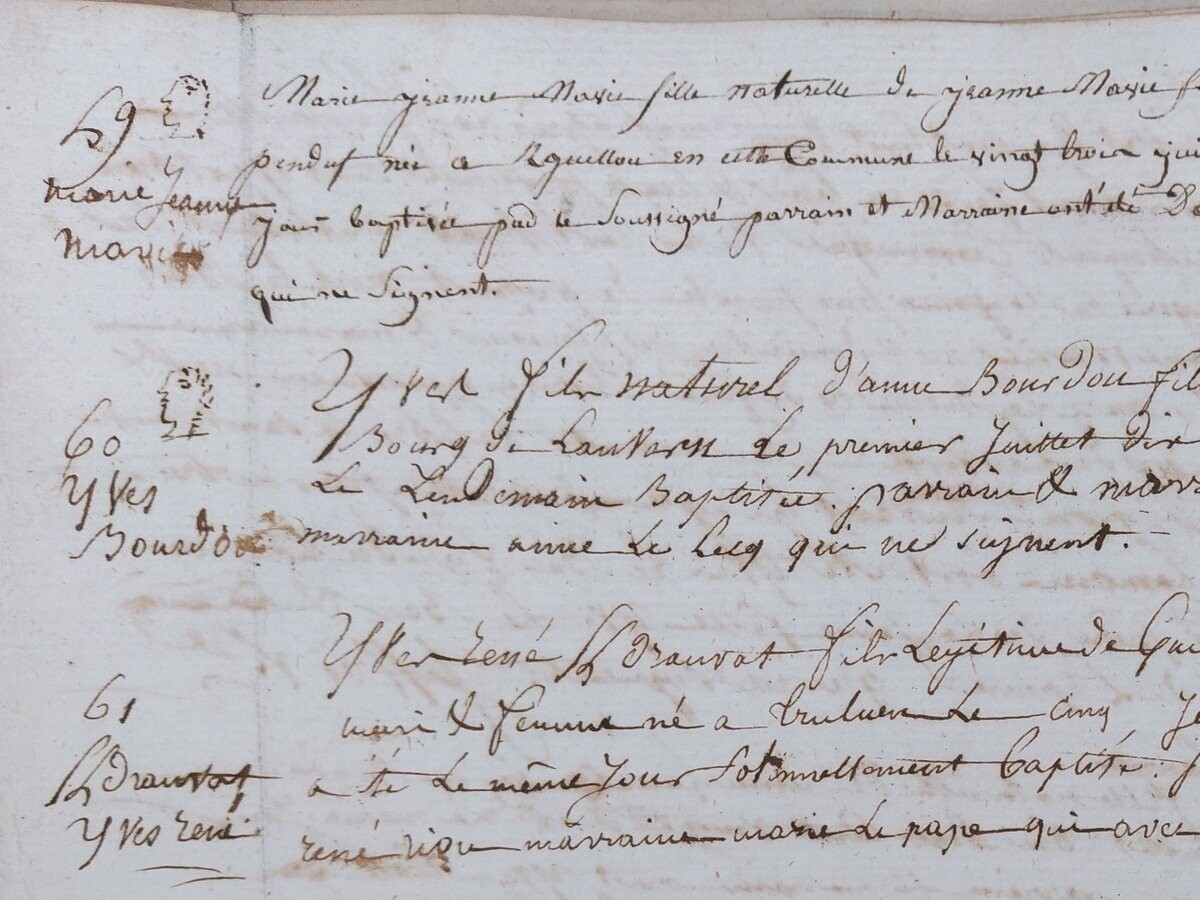 59
Marie Jeanne
Marie
Marie jeanne Marie fille naturelle de jeanne Marie
née a en cette Commune le vingt trois
jour baptisée par le Soussigné parrain et Marraine ont été
qui ne Signent.
60
Yves
Bourdon
Yves fils naturel d'anne Bourdon fil
Bourg de Lanvern Le premier Juillet dix
Le Lendemain Baptisée. parrain & marr
marraine anne Le Lecq qui ne signent.
61
Yves rené
Yves rené fils Legitime de Gui
mari & femme né a Le cinq
a été Le même Jour Solennellement Baptisé.
rené riou marraine marie Le pape qui avec